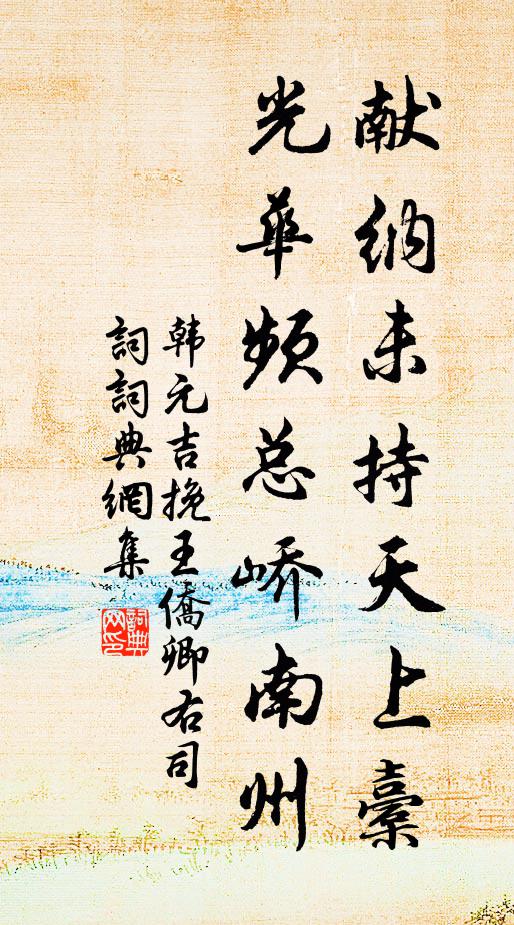 献纳未持天上橐
光华频总峤南州
韩元吉挽王僑卿右司
詞詞典網集
詞典网印